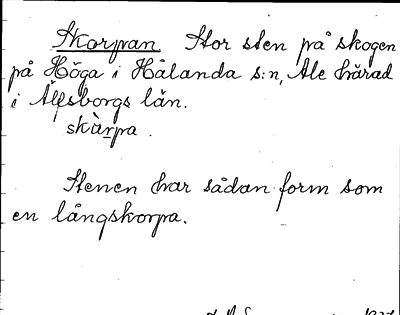 Skorpan Stor sten på skogen
på Höga i Hålanda s:n, Ale härad
i Älfsborgs län.
skàrpa.
Stenen har sådan form som
en långskorpa.